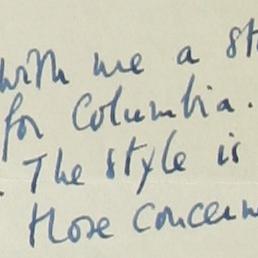 with me a st
for Columbia.
The style is
those concern